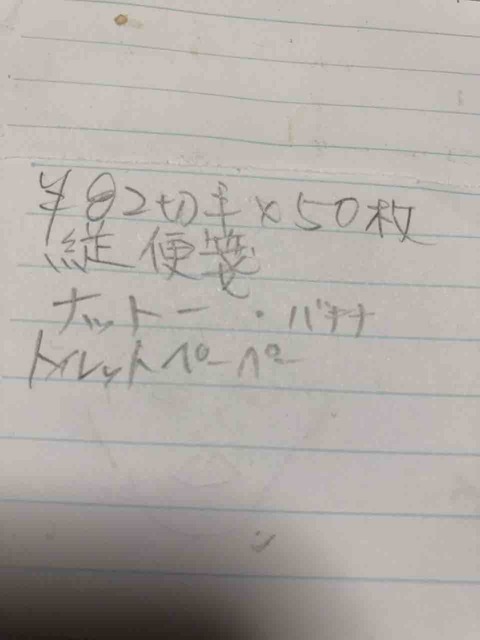 ¥82切手×50枚
縦便箋
ナットー・バナナ
トイレットペーパー